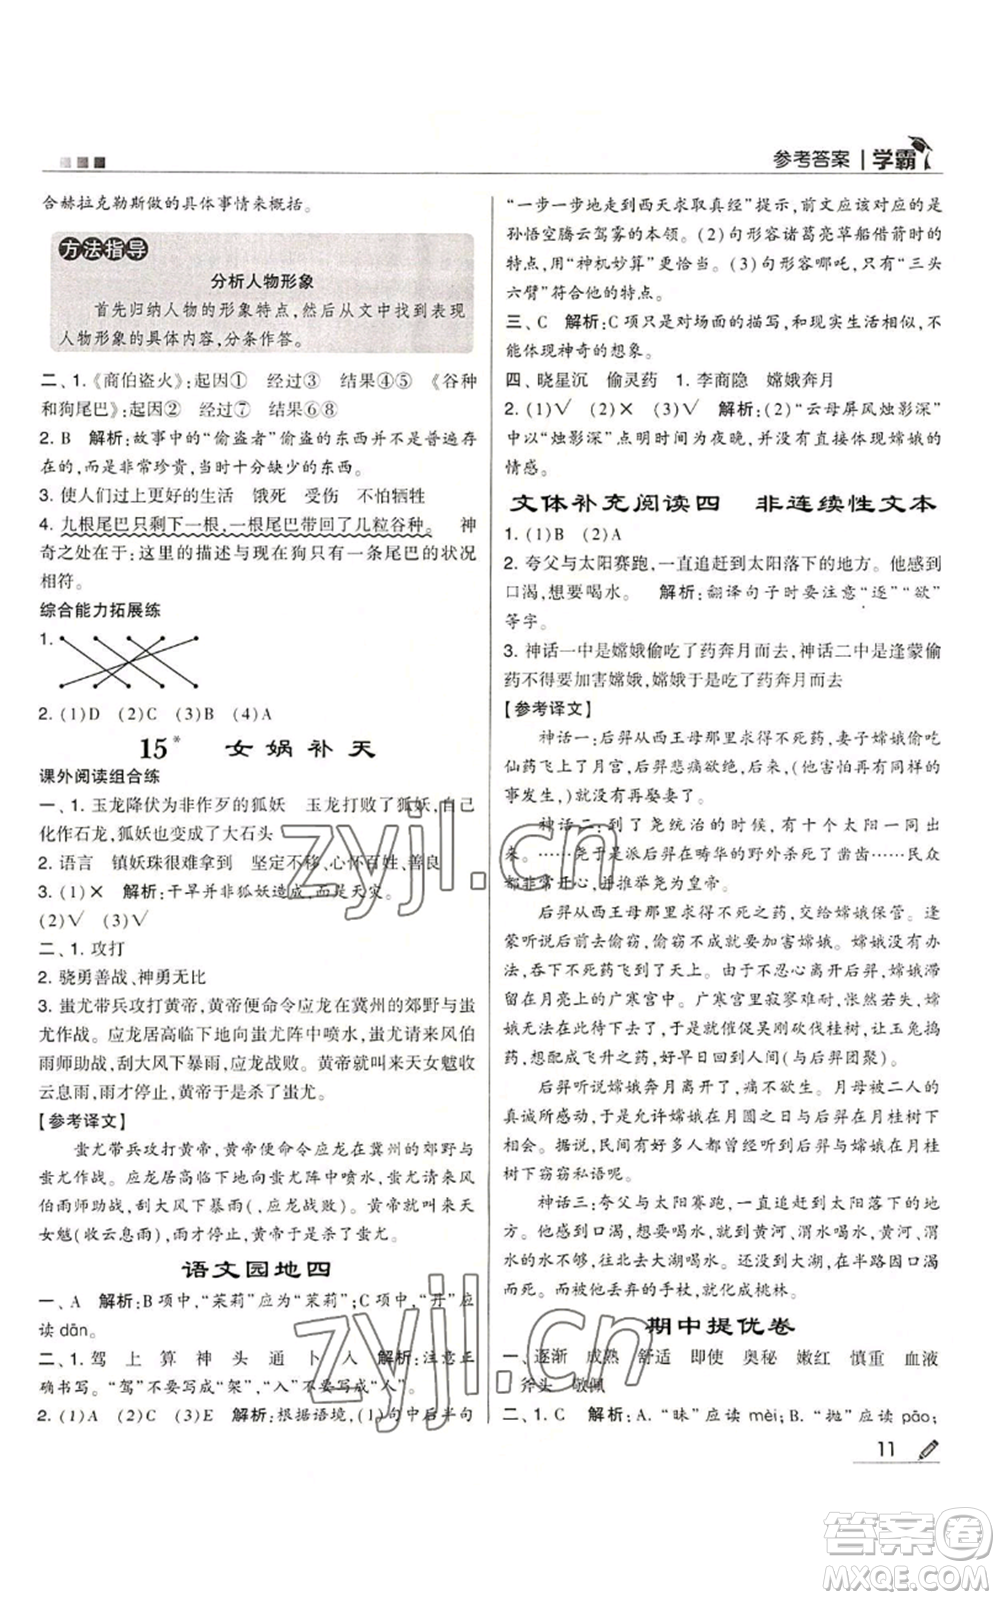 参考答案 学霸
合赫拉克勒斯做的具体事情来概括。
方法指导
分析人物形象
首先归纳人物的形象特点,然后从文中找到表现
人物形象的具体内容,分条作答。
二、1.《商伯盗火》:起因① 经过③ 结果④⑤ 《谷种
和狗尾巴》:起因② 经过⑦ 结果⑥⑧
2. B 解析:故事中的“偷盗者”偷盗的东西并不一定
在的,而是非常珍贵,当时十分缺少的东西。
3. 使人们过上更好的生活 饿死 受伤 不怕牺牲
4. 九根尾巴只剩下一根,一根尾巴带回了几粒谷种。 神
奇之处在于:这里的描述与现在狗只有一条尾巴的状况
相符。
综合能力拓展练
1.
2. (1)D (2)C (3)B (4)A
15* 女娲补天
课外阅读组合练
一、1. 玉龙降伏为非作歹的狐妖 玉龙打败了狐妖,自己
化作石龙,狐妖也变成了大石头
2. 语言 镇妖珠很难拿到 坚定不移、心怀百姓、善良
3. (1)× 解析:干旱并非狐妖造成,而是天灾。
(2)√ (3)√
二、1. 攻打
2. 骁勇善战、神勇无比
3. 蚩尤带兵攻打黄帝,黄帝便命令应龙在冀州的郊野与蚩
尤作战。应龙居高临下地向蚩尤阵中喷水,蚩尤请来风伯
雨师助战,刮大风下暴雨,应龙战败。黄帝请下天女魃收
云息雨,雨才停止,黄帝于是杀了蚩尤。
【参考译文】
蚩尤带兵攻打黄帝,黄帝便命令应龙在冀州的郊野与
蚩尤作战。应龙居高临下地向蚩尤阵中喷水,蚩尤请来风
伯雨师助战,刮大风下暴雨,(应龙战败)。黄帝就请来天
女魃(收云息雨),雨才停止,黄帝于是杀了蚩尤。
语文园地四
一、A 解析:B项中,“茉莉”应为“茉莉”;C项中,“开”应
读dān。
二、1. 驾 上 算 神 头 通 卜 人 解析:注意正
确书写。“驾”不要写成“架”,“入”不要写成“人”。
2. (1)A (2)C (3)E 解析:根据语境,(1)句中后半句
“一步一步地走到西天求取真经”提示,前文应该对应的是
孙悟空腾云驾雾的本领。(2)句形容诸葛亮草船借箭时的
特点,用“神机妙算”更恰当。(3)句形容哪吒,以“三头
六臂”符合他的特点。
三、C 解析:C项只是对场面的描写,和现实生活相似,不
能体现神奇的想象。
四、晓星沉 偷灵药 1. 李商隐 嫦娥奔月
2. (1)√ (2)× (3)√ 解析:(2)“云母屏风烛影深”
中以“烛影深”点明时间为夜晚,并没有直接体现嫦娥的
情感。
文体补充阅读四 非连续性文本
1. (1)B (2)A
2. 夸父与太阳赛跑,一直追赶到太阳落下的地方。他感到
口渴,想要喝水。 解析:翻译句子时要注意“逐”“欲”
等字。
3. 神话一中是嫦娥偷吃了药奔月而去 神话二中是逢蒙偷
药不得要加害嫦娥,嫦娥于是吃了药奔月而去
【参考译文】
神话一:后羿从西王母那里求得不死之药,妻子嫦娥偷吃
仙药飞上了月宫,后羿失落悲痛欲绝,(后来也没有同样的
事发生,)就没有再娶妻了。
神话二:到了尧统治的时候,有十个太阳一同出
来。……尧于是派后羿在畴华的野外杀死了凿齿……民众
都非常开心,并推举尧为皇帝。
后羿从西王母那里求得不死之药,交给嫦娥保管。逢
蒙听说后前去偷窃,偷窃不成就要加害嫦娥。嫦娥没有办
法,吞下不死药飞到了天上。由于不忍心离开后羿,嫦娥滞
留在了月亮广寒宫中。广寒宫里寂寥难耐,怅然若失,嫦
娥无法在此待下去,于是就催促吴刚砍伐桂树,让玉兔捣
药,想配成飞升之药,好早日回到人间(与后羿团聚)。
后羿听说嫦娥奔月离开了,痛不欲生。月母被二人的
真诚所感动,于是允许嫦娥在月圆之日与后羿在月桂树下
相会。据说,民间有好多人都曾听到后羿与嫦娥在月桂
树下窃窃私语呢。
神话三:夸父与太阳赛跑,一直追赶到太阳落下的地
方。他感到口渴,想要喝水,就到黄河、渭水喝水,黄河、渭
水的水不够,往北去大湖喝水。没到大湖,在半路因口渴
而死。他丢弃的手杖,就化成桃林。
期中提优卷
一、逐渐 成熟 舒适 即使 奥秘 嫩红 慎重 血液
斧头 敬佩
二、1. C 解析:A.“昧”应读mèi;B.“抛”应读pāo;
11
zyjl.cn
zyjl.cn
答案圈
MXQE.COM